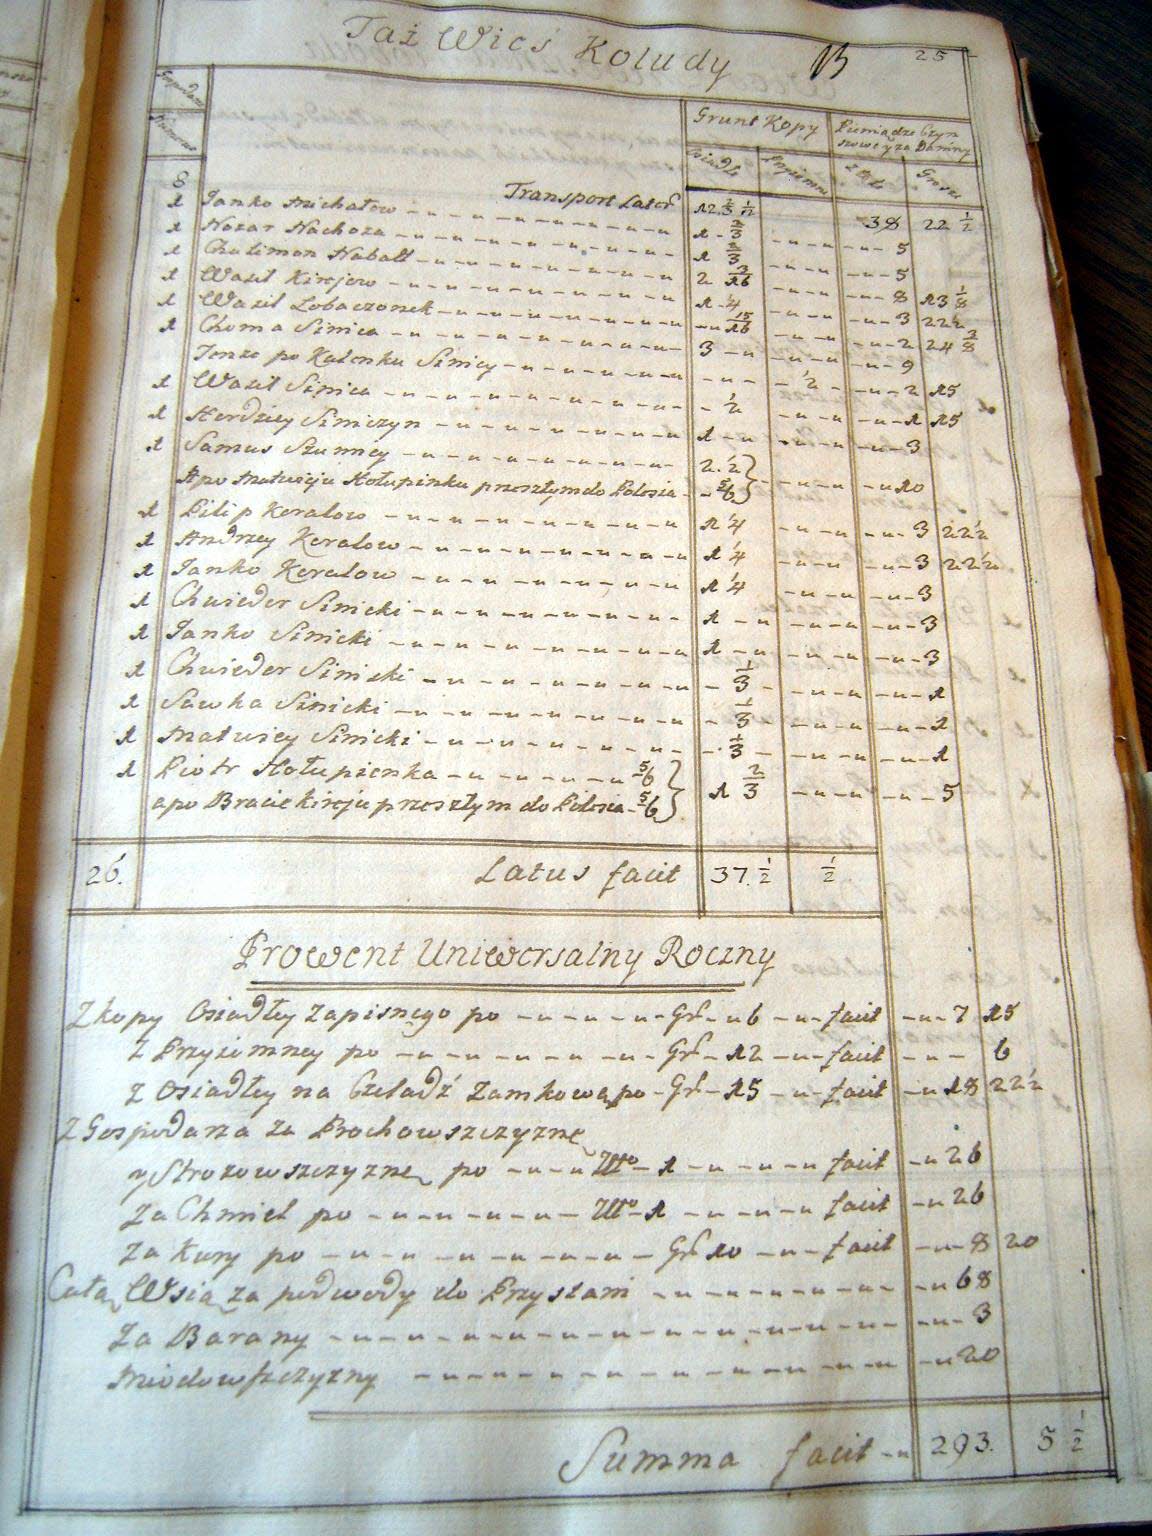 Taż Wieś Koludy 13 25
Gospodarz
Numerus
Grunt Kopy Pieniądze Czyn
szowe y za Daniny
Osiadłe Przyiemne Złote Grosze
8 Transport Lateris 12. 2/3 1/12 38 22 1/2
1 Janko Michałow 1 2/3 5
1 Nazar Nachoza 1 2/3 5
1 Chalimon Nabalt 2 8 13 1/8
1 Wasil Kirejew 1 1/4 3 22 1/2
1 Wasil Lobaczonek 15/16 2 24 3/8
1 Choma Sinica 3 9
Tenże po Kalenku Sinicy 1/2 2 15
1 Wasil Sinica 1/2 1 15
1 Herdziey Siniczyn 1 3
1 Samus Szumiey 2 1/2
A po Matwieju Hołupinku przeszłym do Polesia 5/6 10
1 Pilip Keralow 1 1/4 3 22 1/2
1 Andrzey Keralow 1 1/4 3 22 1/2
1 Janko Keralow 1 1/4 3
1 Chwieder Sinicki 1 3
1 Janko Sinicki 1 3
1 Chwieder Sinicki 1/3 1
1 Sawka Sinicki 1/3 1
1 Matwiey Sinicki 1/3 1
1 Piotr Hołupienka 5/6 1 2/3 5
a po Bracie Kireju przeszłym do Polesia 5/6
26. Latus facit 37. 1/2 1/2
Prowent Uniwersalny Roczny
Z kopy Osiadłey Zapisnego po Gr. 6 facit 7 15
Z Przyiemney po Gr. 12 facit 6
Z Osiadłey na Czeladź Zamkową po Gr. 15 facit 18 22 1/2
Z Gospodarza za Prochowszczyznę
y Strozowszczyznę po Złto 1 facit 26
Za Chmiel po Złto 1 facit 26
Za Kury po Gr. 10 facit 8 20
Cała Wsią za podwody do Przystani 68
Za Barany 3
Miodowszczyzny 20
Summa facit 293. 5 1/2